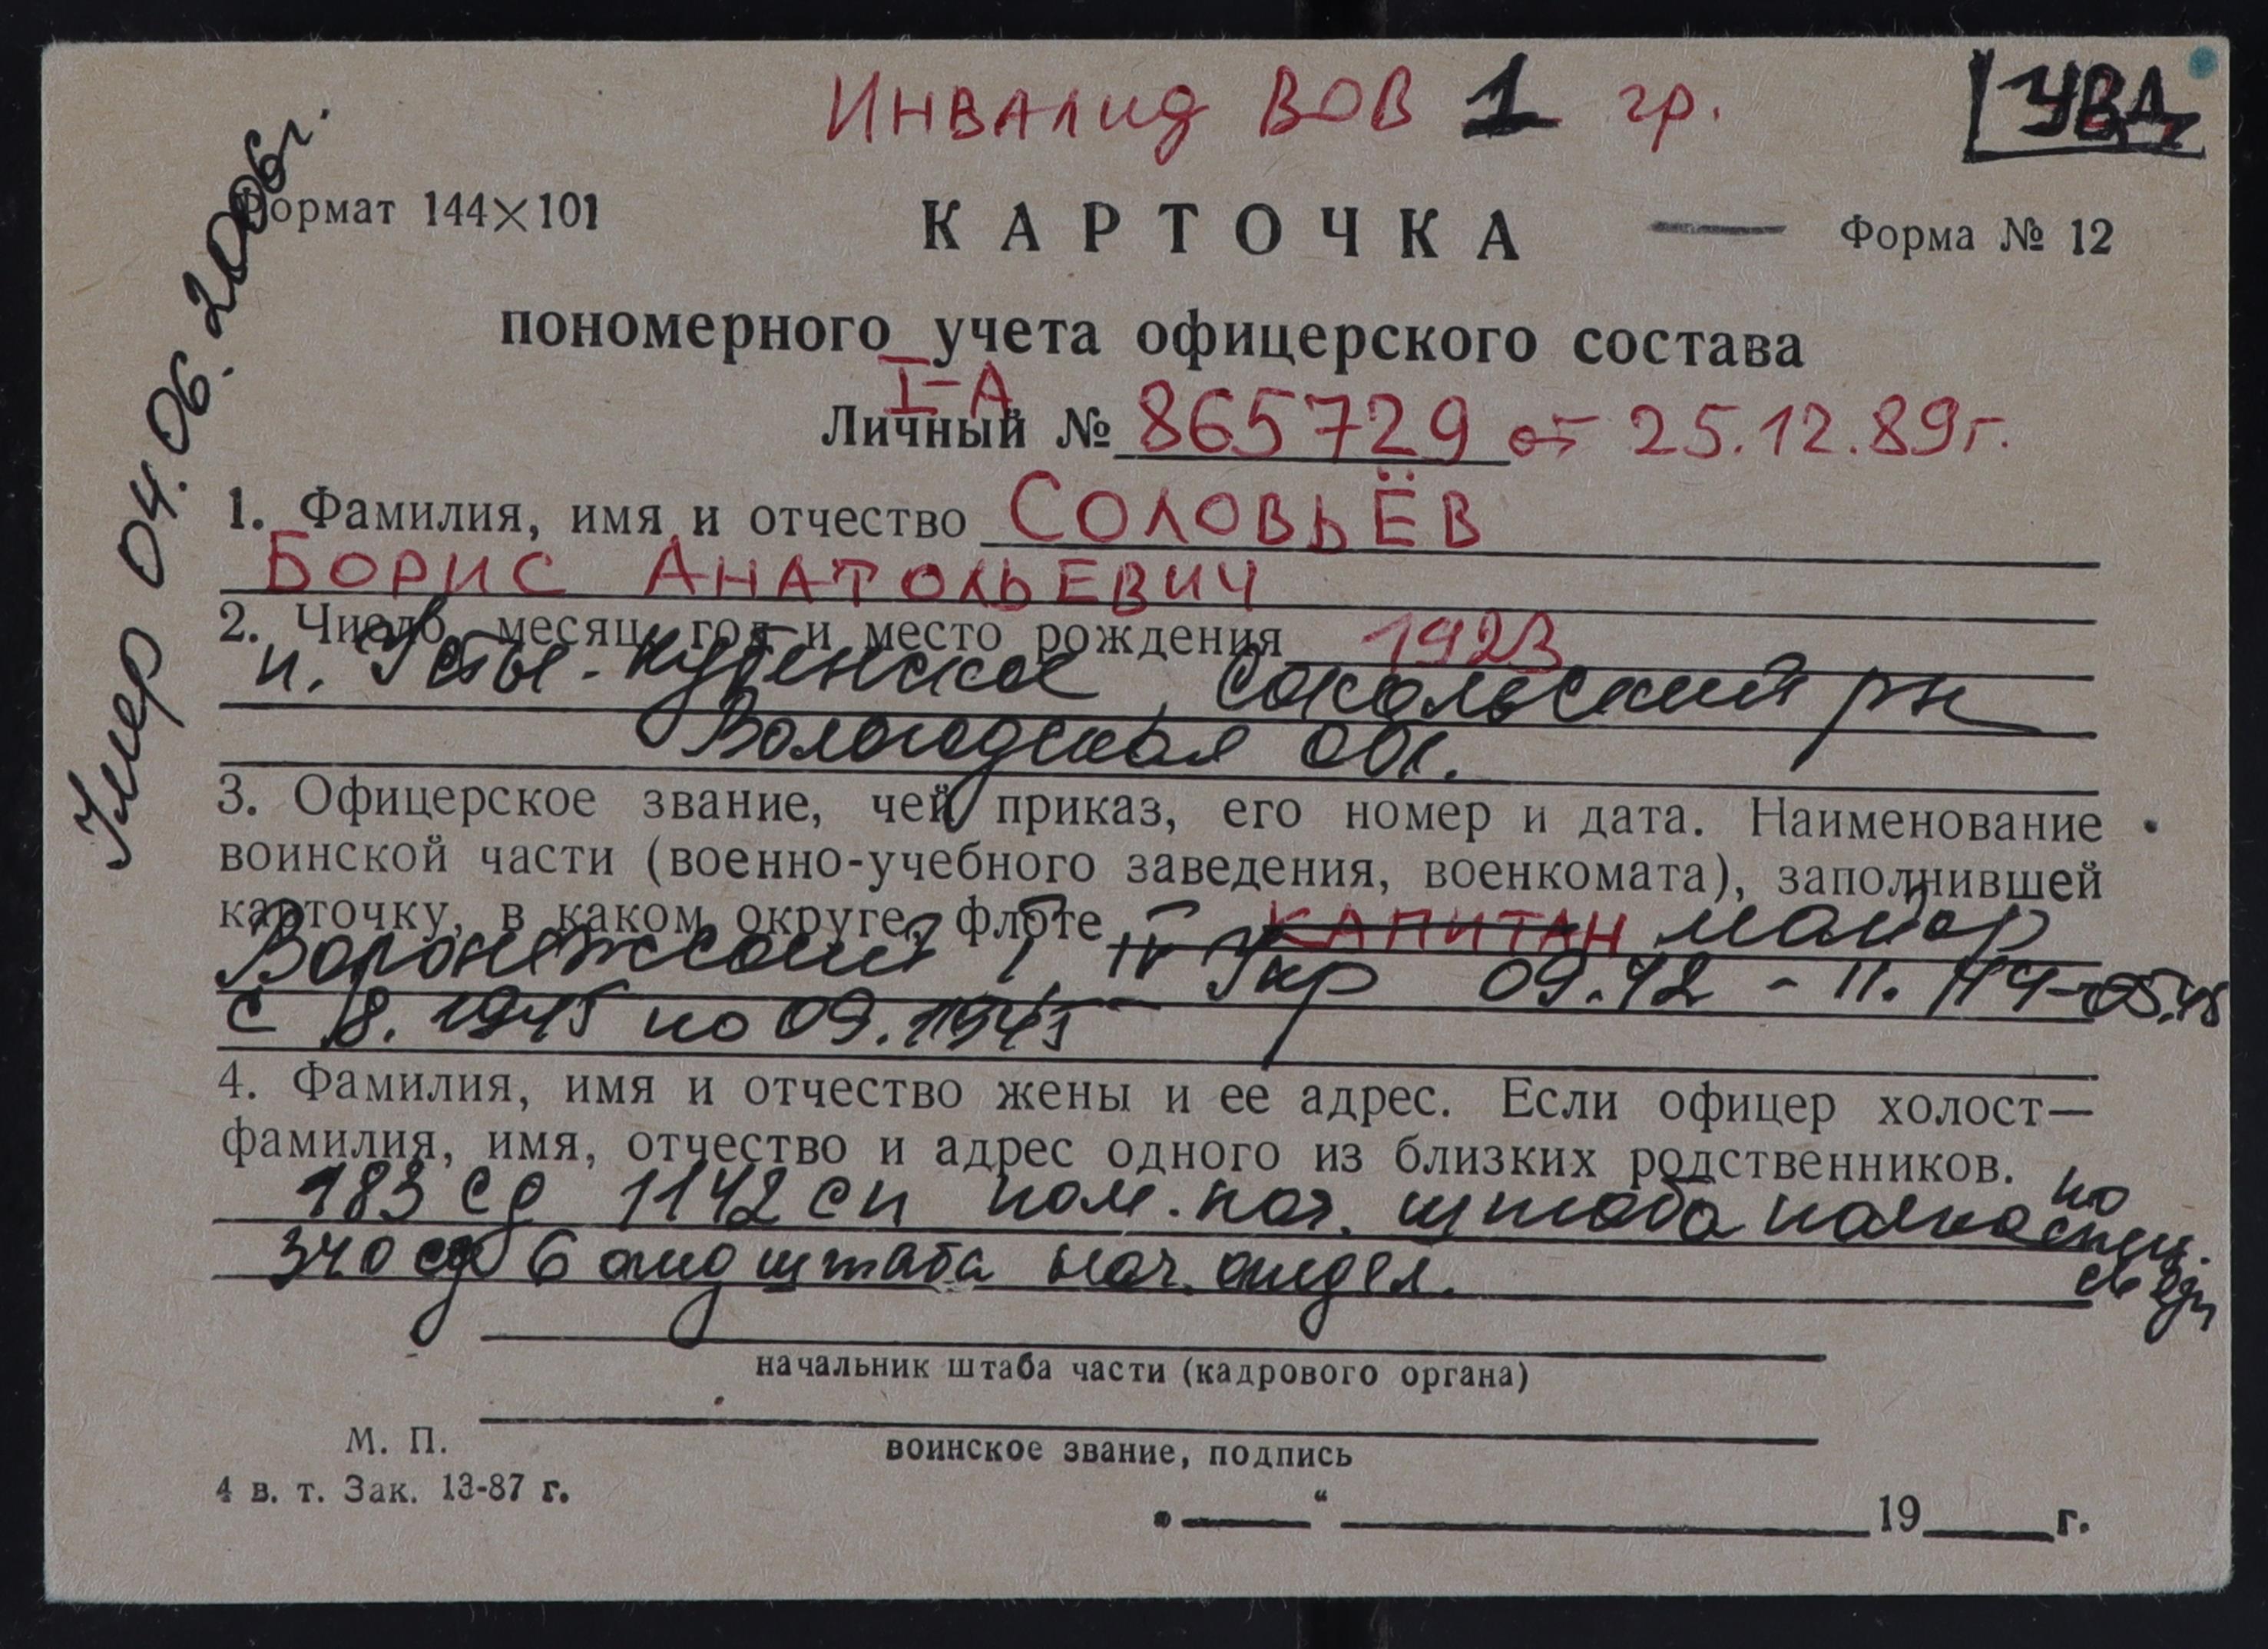 Инвалид ВОВ 1 гр.
УВД
Умер 04.06.2006г.
Формат 144×101
КАРТОЧКА
Форма № 12
пономерного учета офицерского состава
I-А
Личный № 865729 от 25.12.89г.
1. Фамилия, имя и отчество СОЛОВЬЁВ
БОРИС АНАТОЛЬЕВИЧ
2. Число, месяц, год и место рождения 1923
п. Усть-Кубенское, Сокольский рн
Вологодская обл.
3. Офицерское звание, чей приказ, его номер и дата. Наименование
воинской части (военно-учебного заведения, военкомата), заполнившей
карточку, в каком округе, флоте КАПИТАН майор
Воронежский I, IV Укр 09.42 - 11.44-05.45
с 8.1945 по 09.1945
4. Фамилия, имя и отчество жены и ее адрес. Если офицер холост—
фамилия, имя, отчество и адрес одного из близких родственников.
183 сд 1142 сп пом. нач. штаба полка по спец. связи
340 сд 6 отд штаба нач. отдел.
начальник штаба части (кадрового органа)
М. П.
воинское звание, подпись
4 в. т. Зак. 13-87 г.
„ “ 19 г.